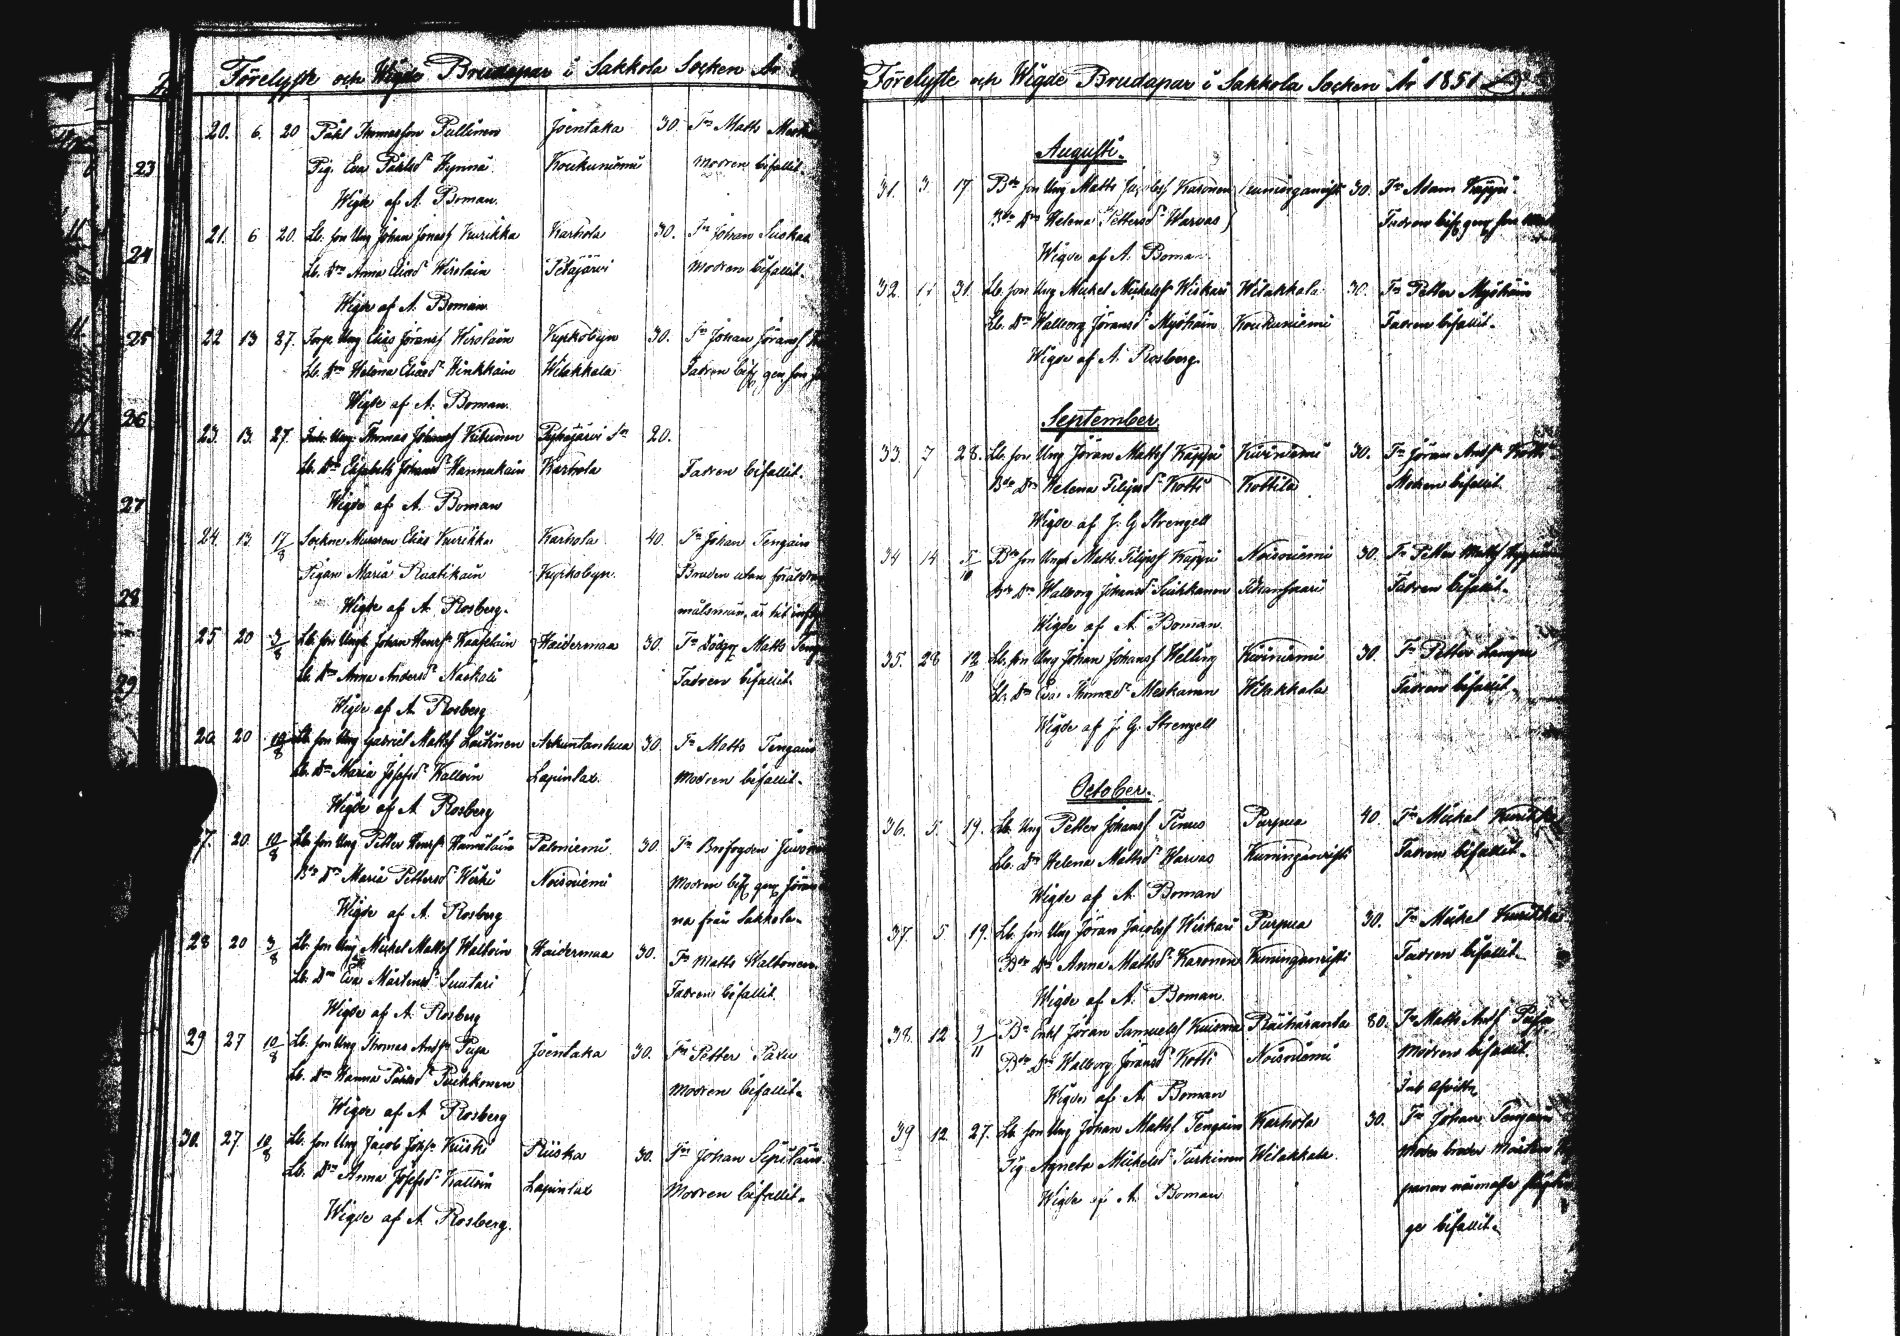 Förelyste och Wigde Brudapar i Sakkola Socken År
20. 6. 20 Påhl Thomasson Pullinen Joentaka 30. Fn Matts
Pig. Eva Påhlsd Hynnä Koukuniemi Modren bifallit.
Wigde af A. Boman.
21. 6 20. Lb. son Ung Johan Jonass Kurikka Karhola 30. Fn Johan Suokas
Lb. Dn Anna Eliasd Hirolain Petäjärvi Modren bifallit.
Wigde af A. Boman
22 13 27. Torp. Ung Elias Jöranss Hirolain Kyrkobyn 30. Fn Johan Jöranss
Lb. Dn Helena Eliasd Kinkkain Wilakkala Fadren bif. gen. son
Wigde af A. Boman.
23. 13. 27. Inh. Ung. Thomas Johanss Kitunen Pyhäjärvi Sn 20.
Lb. Dn Elisabeth Johansd Hannukain Karhola Fadren bifallit.
Wigde af A. Boman
24. 13. 17/8 Sockne Muraren Elias Kurikka Karhola 40. Fn Johan Tengain
Pigan Maria Ruatikain Kyrkobyn. Bruden utan
målsman, är
Wigde af A. Rosberg.
25 20 3/8 Lb. son Ungk Johan Henrss Kaasalain Haidermaa 30. Fn Matts
Lb. Dn Anna Andersd Naskali Fadren bifallit.
Wigde af A. Rosberg
26 20 10/8 Lb. son Ung Gabriel Mattss Loutinen Arkuntanhua 30. Fn Matts Tengain
Lb. Dn Maria Josefsd Kalloin Lapinlax Modren bifallit.
Wigde af A. Rosberg
27. 20. 10/8 Lb. son Ung Petter Henrss Hämäläin Paloniemi 30. Fn
Bde Dr Maria Pettersd Werho Noisniemi Modren bif. gen. Jöran
na från Sakkola
Wigde af A. Rosberg
28 20 3/8 Lb. son Ung Mickel Mattss Waltoin Haidermaa 30. Fn Matts Waltonen
Lb. Dn Eva Mårtensd Suutari Fadren bifallit
Wigde af A. Rosberg
29 27 10/8 Lb. son Ung Thomas Andss Puja Joentaka 30. Fn Petter
Lb. Dn Hanna Påhlsd Puikkonen Modren bifallit.
Wigde af A Rosberg
30. 27 10/8 Lb. son Ung Jacob Johss Kiiski Riiska 30. Fn Johan
Lb. Dn Anna Josefsd Kalloin Lapinlax Modren bifallit.
Wigde af A Rosberg.
23
24
25
26
27
28
29
Förelyste och Wigde Brudapar i Sakkola Socken År 1851
Augusti.
31. 3. 17. Bde son Ung Matts Jacobss Karonen Kuninganristi 30. Fn Adam Käppi
Bde Dn Helena Pettersd Warvas Fadren bif. gen. son
Wigde af A. Boman
32. 31. Lb. son Ung Mickel Mickelss Wiskari Wilakkala 30. Fn Petter Myöhäin
Lb. Dn Walborg Jöransd Myöhäin Koukuniemi Fadren bifallit.
Wigde af A. Rosberg.
September
33. 7 28. Lb. son Ung Jöran Mattss Käppi Kiviniemi 30. Fn Jöran Andss Kotti
Bde Dn Helena Filipsd Kotti Kottila Modren bifallit.
Wigde af J. G Strengell
34 14 5/10 Bde son Ungk Matts Filipss Käppi Noisniemi 30. Fn Petter Mattss
Bde Dn Walborg Johansd Suikkanen Fadren bifallit.
Wigde af A. Boman.
35. 28 12/10 Lb. son Ung Johan Johanss Helling Kiviniemi 30. Fn Petter
Lb. Dn Eva Thomasd Meskanen Wilakkala Fadren bifallit
Wigde af J. G. Strengell
October.
36. 5. 19. Lb. Ung Petter Johanss Pinus Purpua 40. Fn Mickel Kurikka
Lb. Dn Helena Mattsd Warvas Kuninganristi Fadren bifallit.
Wigde af A. Boman
37. 5 19. Lb. son Ung Jöran Jacobss Wiskari Purpua 30. Fn Mickel Kurikka
Bde Dn Anna Mattsd Karonen Kuninganristi Fadren bifallit.
Wigde af A. Boman.
38. 12 9/11 Bn Enkl Jöran Samuelss Kuisma Räihäranta 80. Fn Matts Andss
Bde Dn Walborg Jöransd Kotti Noisniemi Modren bifallit.
Wigde af A Boman
39 12. 27. Lb. son Ung Johan Mattss Tengain Karhola 30. Fn Johan Tengain
Pig. Agneta Mickelsd Turkinen Wilakkala. Moder broder Mårten
Wigde af A. Boman
ge bifallit.